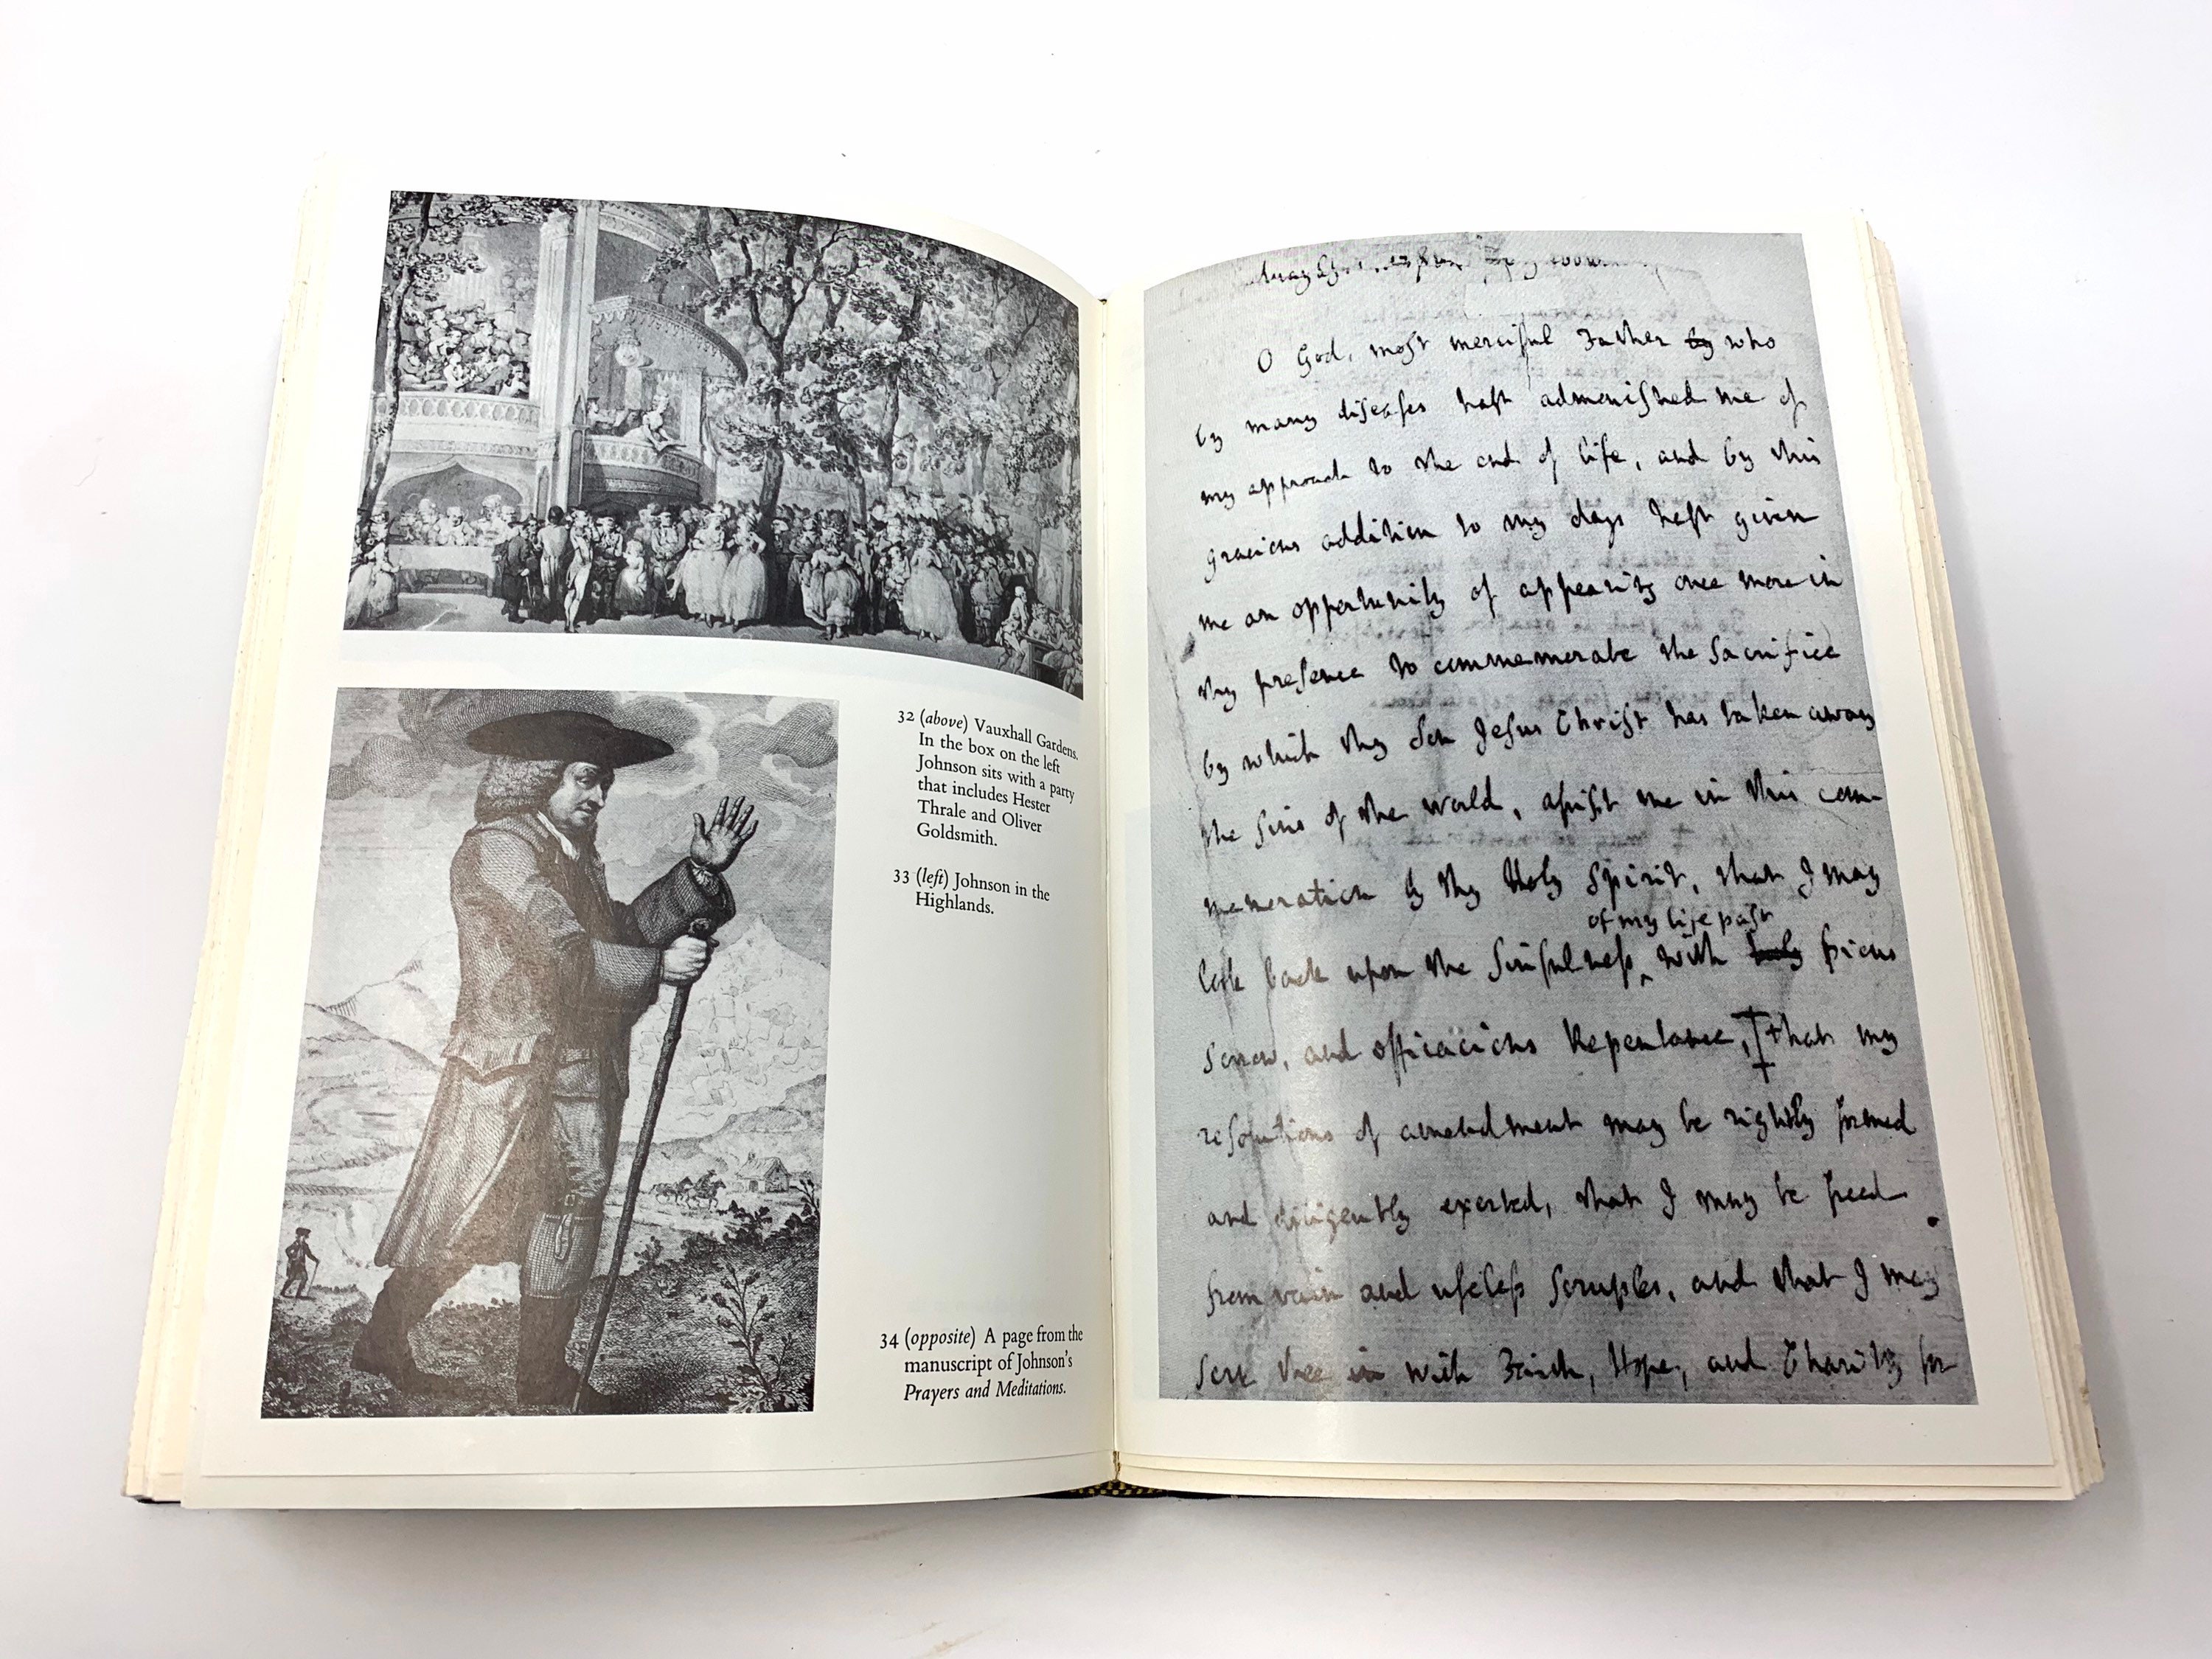 32 (above) Vauxhall Gardens.
In the box on the left
Johnson sits with a party
that includes Hester
Thrale and Oliver
Goldsmith.
33 (left) Johnson in the
Highlands.
34 (opposite) A page from the
manuscript of Johnson's
Prayers and Meditations.
O God, moſt merciful Father by who
by many diſeaſes haſt admoniſhed me of
my approach to the end of life, and by this
gracious addition to my days haſt given
me an opportunity of appearing once more in
thy preſence to commemorate the Sacrifice
by which thy Son Jeſus Chriſt has taken away
the ſins of the world, aſſiſt me in this com-
memoration by thy Holy Spirit, that I may
of my life paſt
look back upon the Sinfulneſs ‸ with pious
Sorrow, and efficacious Repentance, that my
reſolutions of amendment may be rightly formed
and diligently exerted, that I may be freed
from vain and uſeleſs Scruples, and that I may
ſerve thee in with Faith, Hope, and Charity for